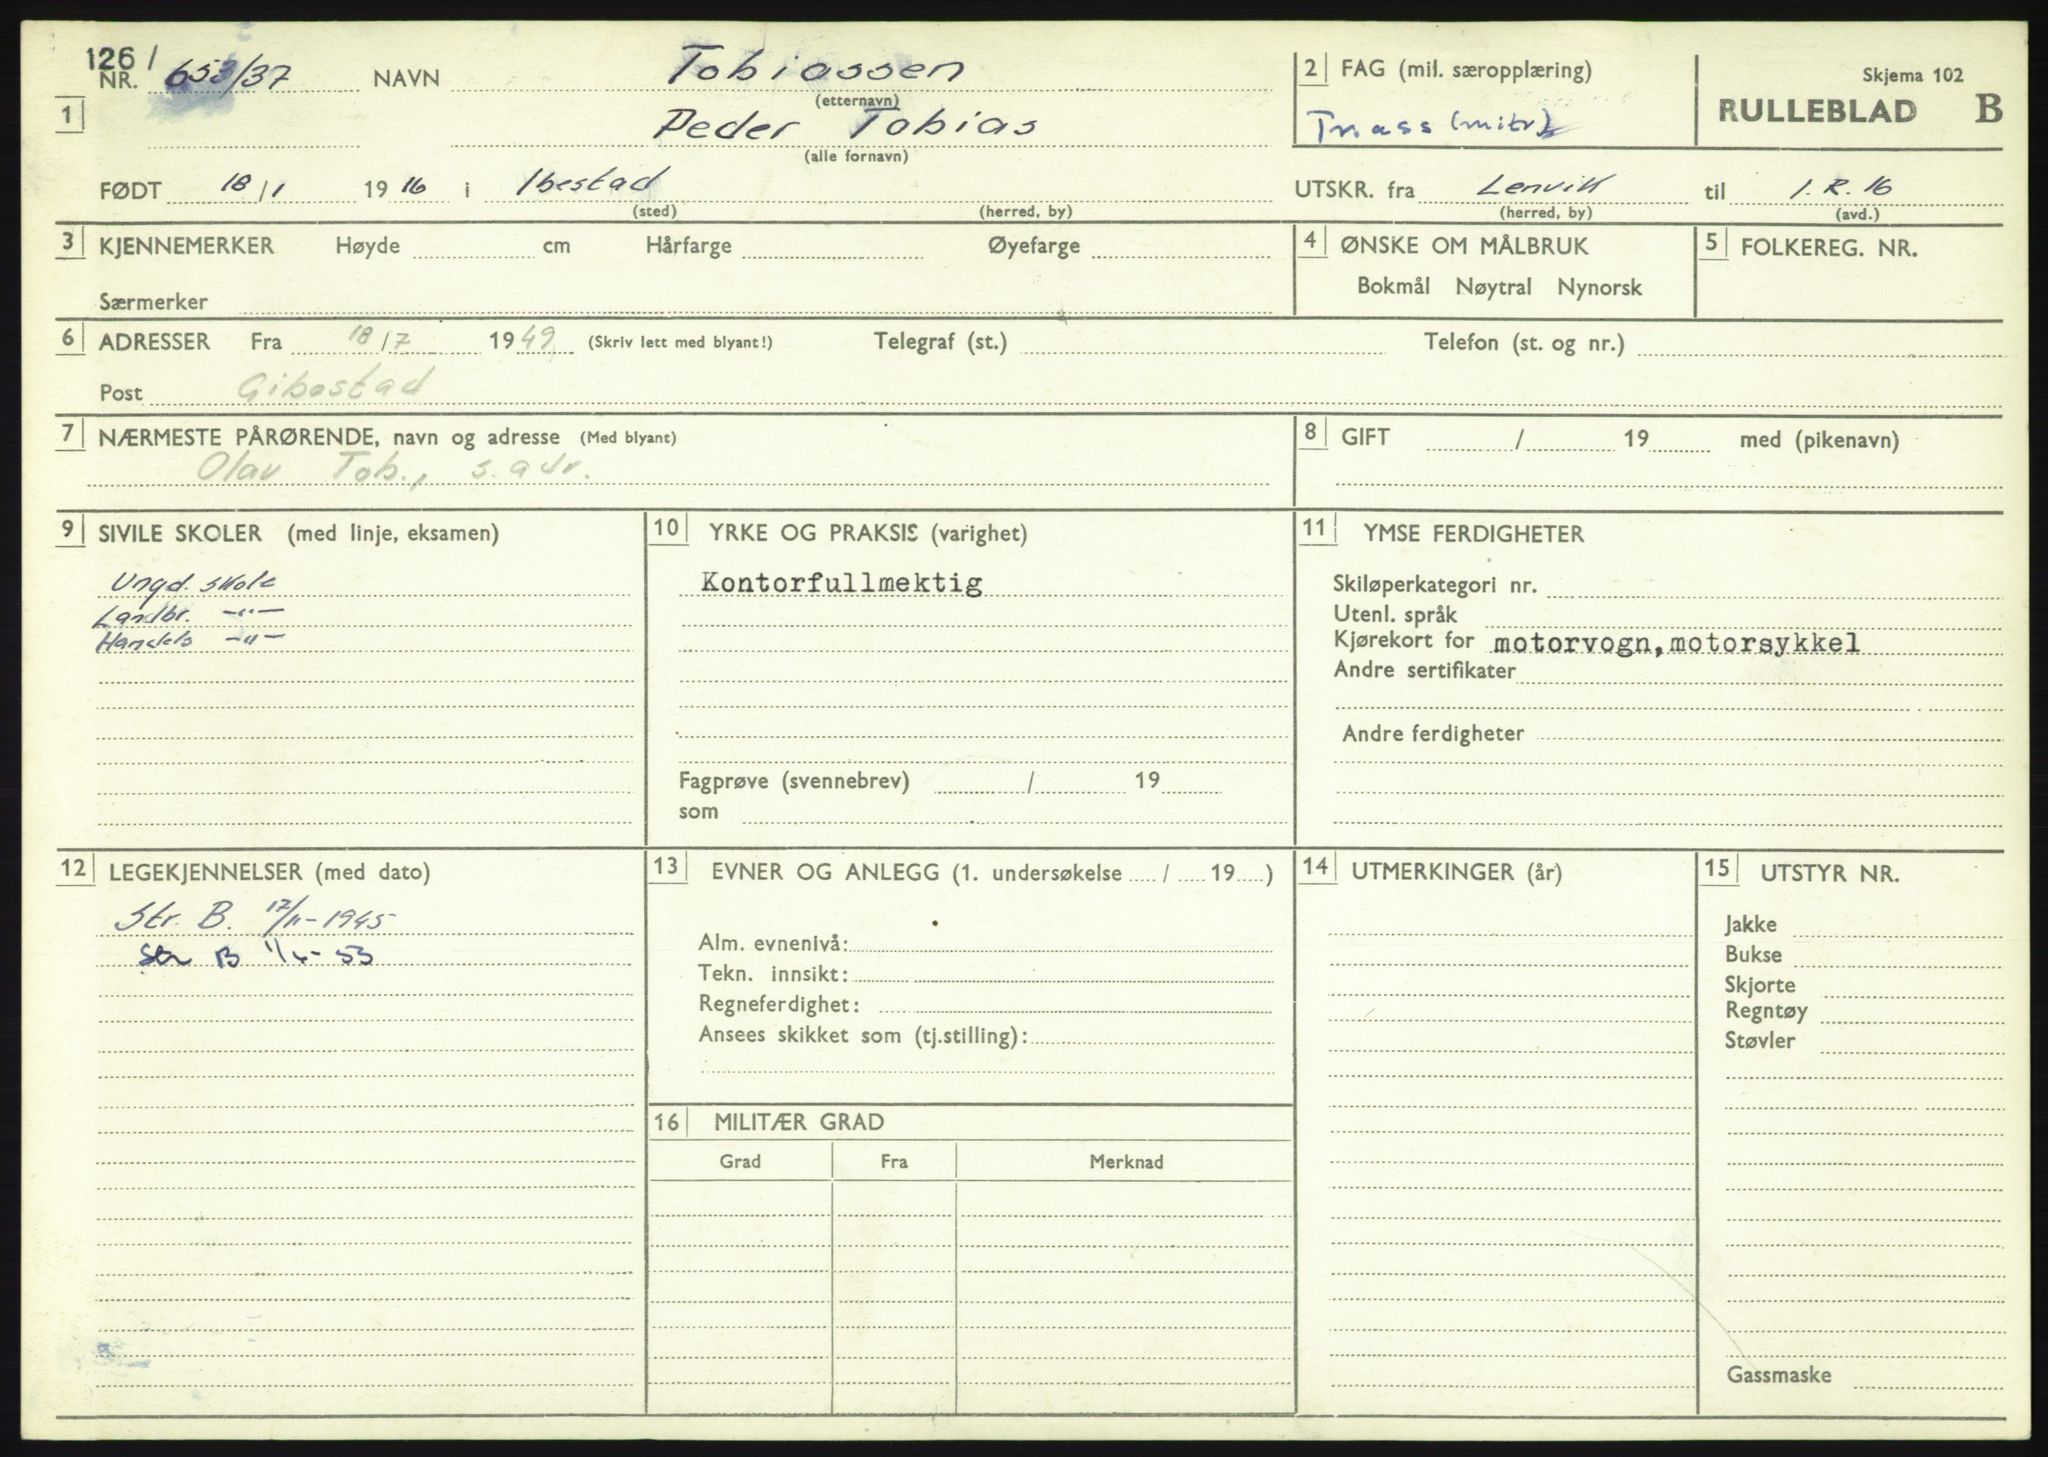 126/
NR. 653/37 NAVN Tobiassen
(etternavn)
1 Peder Tobias
(alle fornavn)
FØDT 18/1 1916 i Ibestad
(sted) (herred, by)
2 FAG (mil. særopplæring)
(mitr)
Skjema 102
RULLEBLAD B
UTSKR. fra Lenvik til I.R. 16
(herred, by) (avd.)
3 KJENNEMERKER Høyde cm Hårfarge Øyefarge
Særmerker
4 ØNSKE OM MÅLBRUK
Bokmål Nøytral Nynorsk
5 FOLKEREG. NR.
6 ADRESSER Fra 18/7 1949 (Skriv lett med blyant!) Telegraf (st.) Telefon (st. og nr.)
Post Gibostad
7 NÆRMESTE PÅRØRENDE, navn og adresse (Med blyant)
Olav Tob., s. adr.
8 GIFT / 19 med (pikenavn)
9 SIVILE SKOLER (med linje, eksamen)
Ungd. skole
Landbr. -"-
Handels -"-
10 YRKE OG PRAKSIS (varighet)
Kontorfullmektig
Fagprøve (svennebrev) / 19
som
11 YMSE FERDIGHETER
Skiløperkategori nr.
Utenl. språk
Kjørekort for motorvogn, motorsykkel
Andre sertifikater
Andre ferdigheter
12 LEGEKJENNELSER (med dato)
Str. B. 17/11-1945
Str B 1/6-53
13 EVNER OG ANLEGG (1. undersøkelse / 19 )
Alm. evnenivå:
Tekn. innsikt:
Regneferdighet:
Ansees skikket som (tj.stilling):
14 UTMERKINGER (år)
15 UTSTYR NR.
Jakke
Bukse
Skjorte
Regntøy
Støvler
Gassmaske
16 MILITÆR GRAD
Grad Fra Merknad